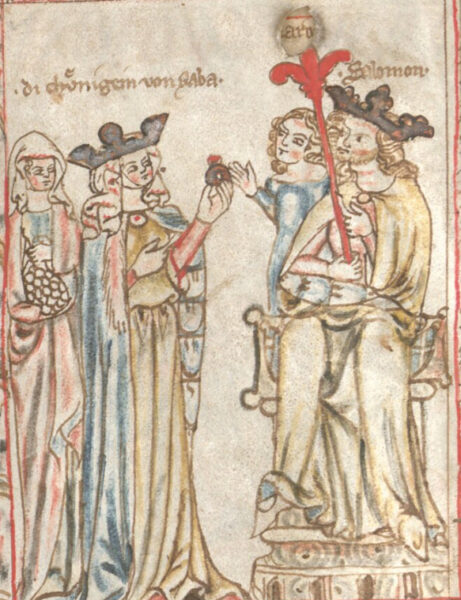 · di chönigein von saba ·
· Salomon ·